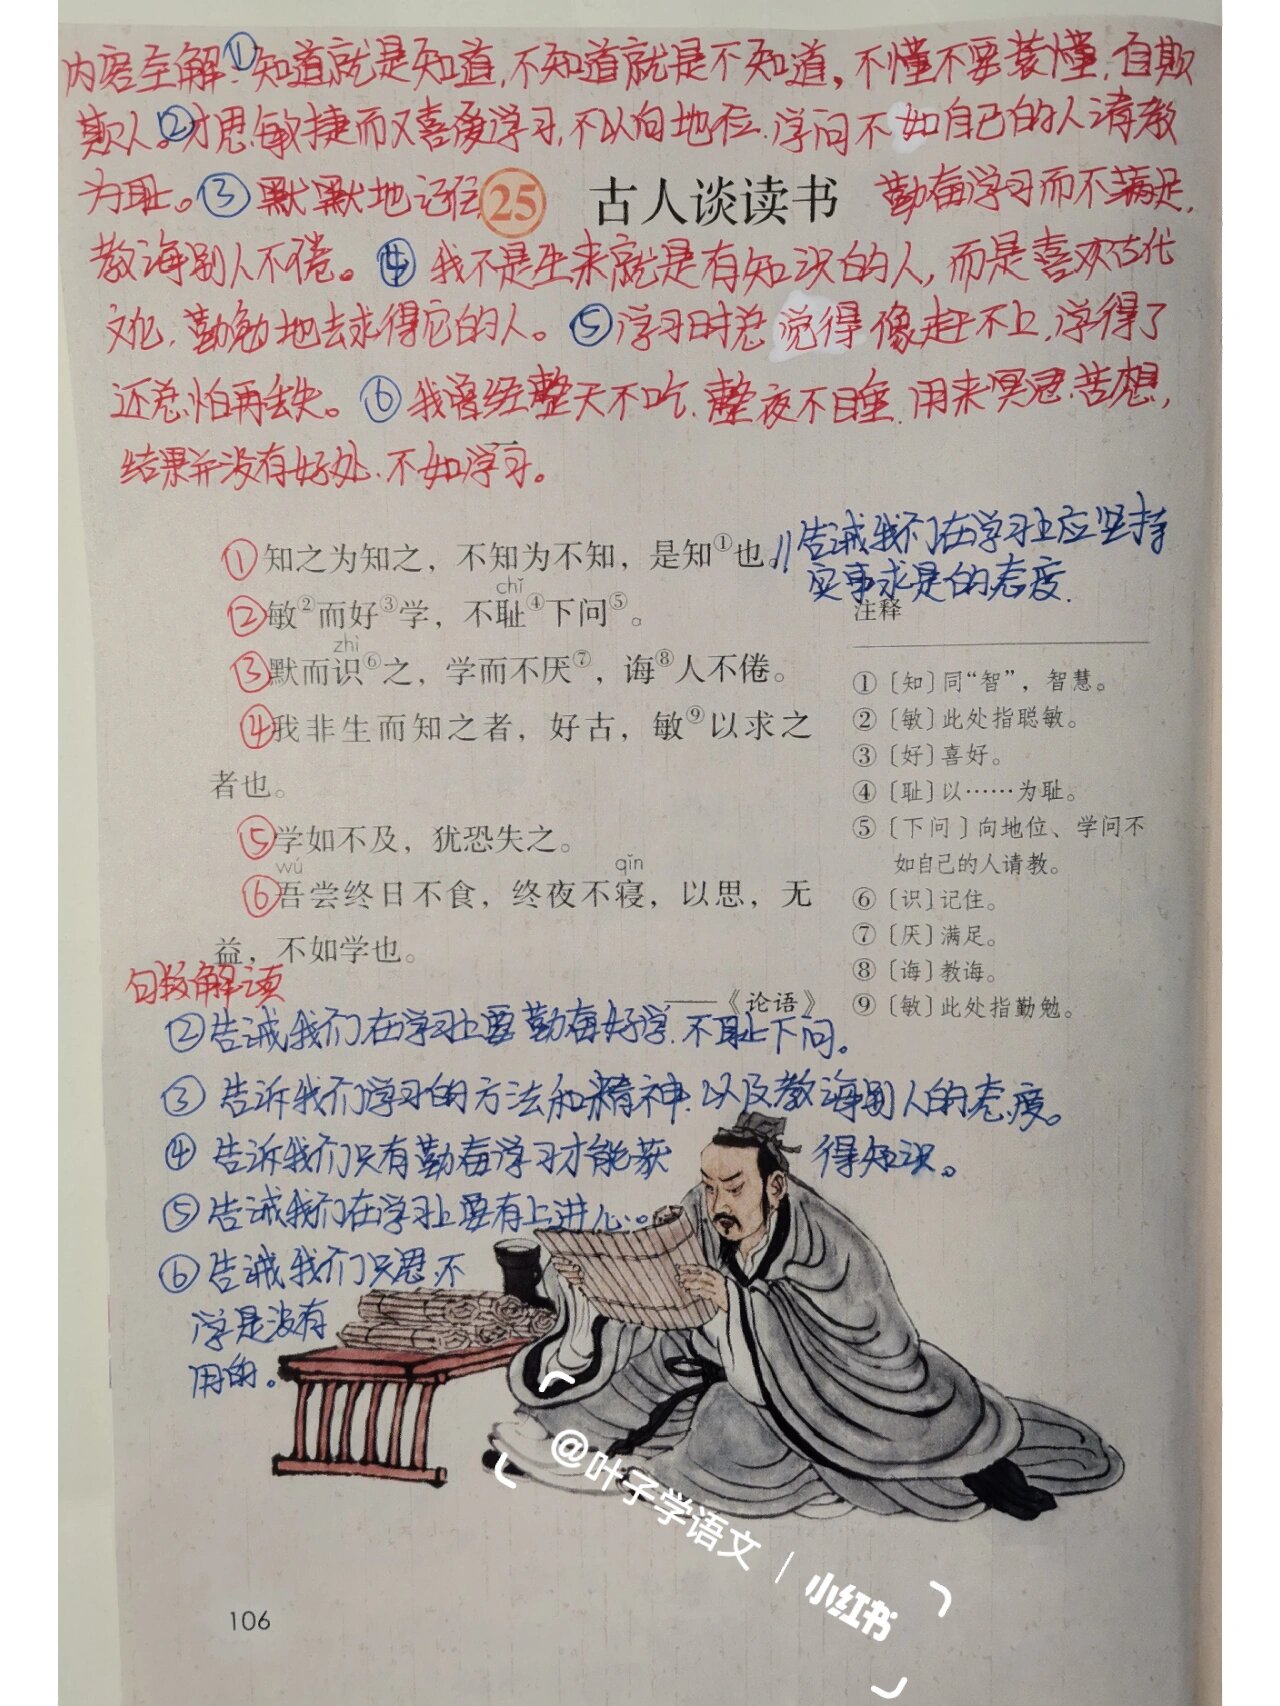 内容理解:①知道就是知道,不知道就是不知道,不懂不要装懂,自欺
欺人。②才思敏捷而又喜爱学习,不以向地位、学问不如自己的人请教
为耻。③默默地记住 勤奋学习而不满足,
25 古人谈读书
教诲别人不倦。④我不是生来就是有知识的人,而是喜欢古代
文化,勤勉地去求得它的人。⑤学习时总觉得像赶不上,学得了
还总怕再丢失。⑥我曾经整天不吃,整夜不睡,用来冥思苦想,
一
结果并没有好处,不如学习。
①知之为知之,不知为不知,是知①也。
告诫我们在学习上应坚持
实事求是的态度.
chǐ
②敏②而好③学,不耻④下问⑤。
zhì
③默而识⑥之,学而不厌⑦,诲⑧人不倦。
④我非生而知之者,好古,敏⑨以求之
者也。
⑤学如不及,犹恐失之。
wú qǐn
⑥吾尝终日不食,终夜不寝,以思,无
益,不如学也。
——《论语》
注释
①〔知〕同“智”,智慧。
②〔敏〕此处指聪敏。
③〔好〕喜好。
④〔耻〕以……为耻。
⑤〔下问〕向地位、学问不
如自己的人请教。
⑥〔识〕记住。
⑦〔厌〕满足。
⑧〔诲〕教诲。
⑨〔敏〕此处指勤勉。
句段解读
②告诫我们在学习上要勤奋好学,不耻下问。
③告诉我们学习的方法和精神,以及教诲别人的态度。
④告诉我们只有勤奋学习才能获得知识。
⑤告诫我们在学习上要有上进心。
⑥告诫我们只思不
学是没有
用的。
@叶子学语文 | 小红书
106